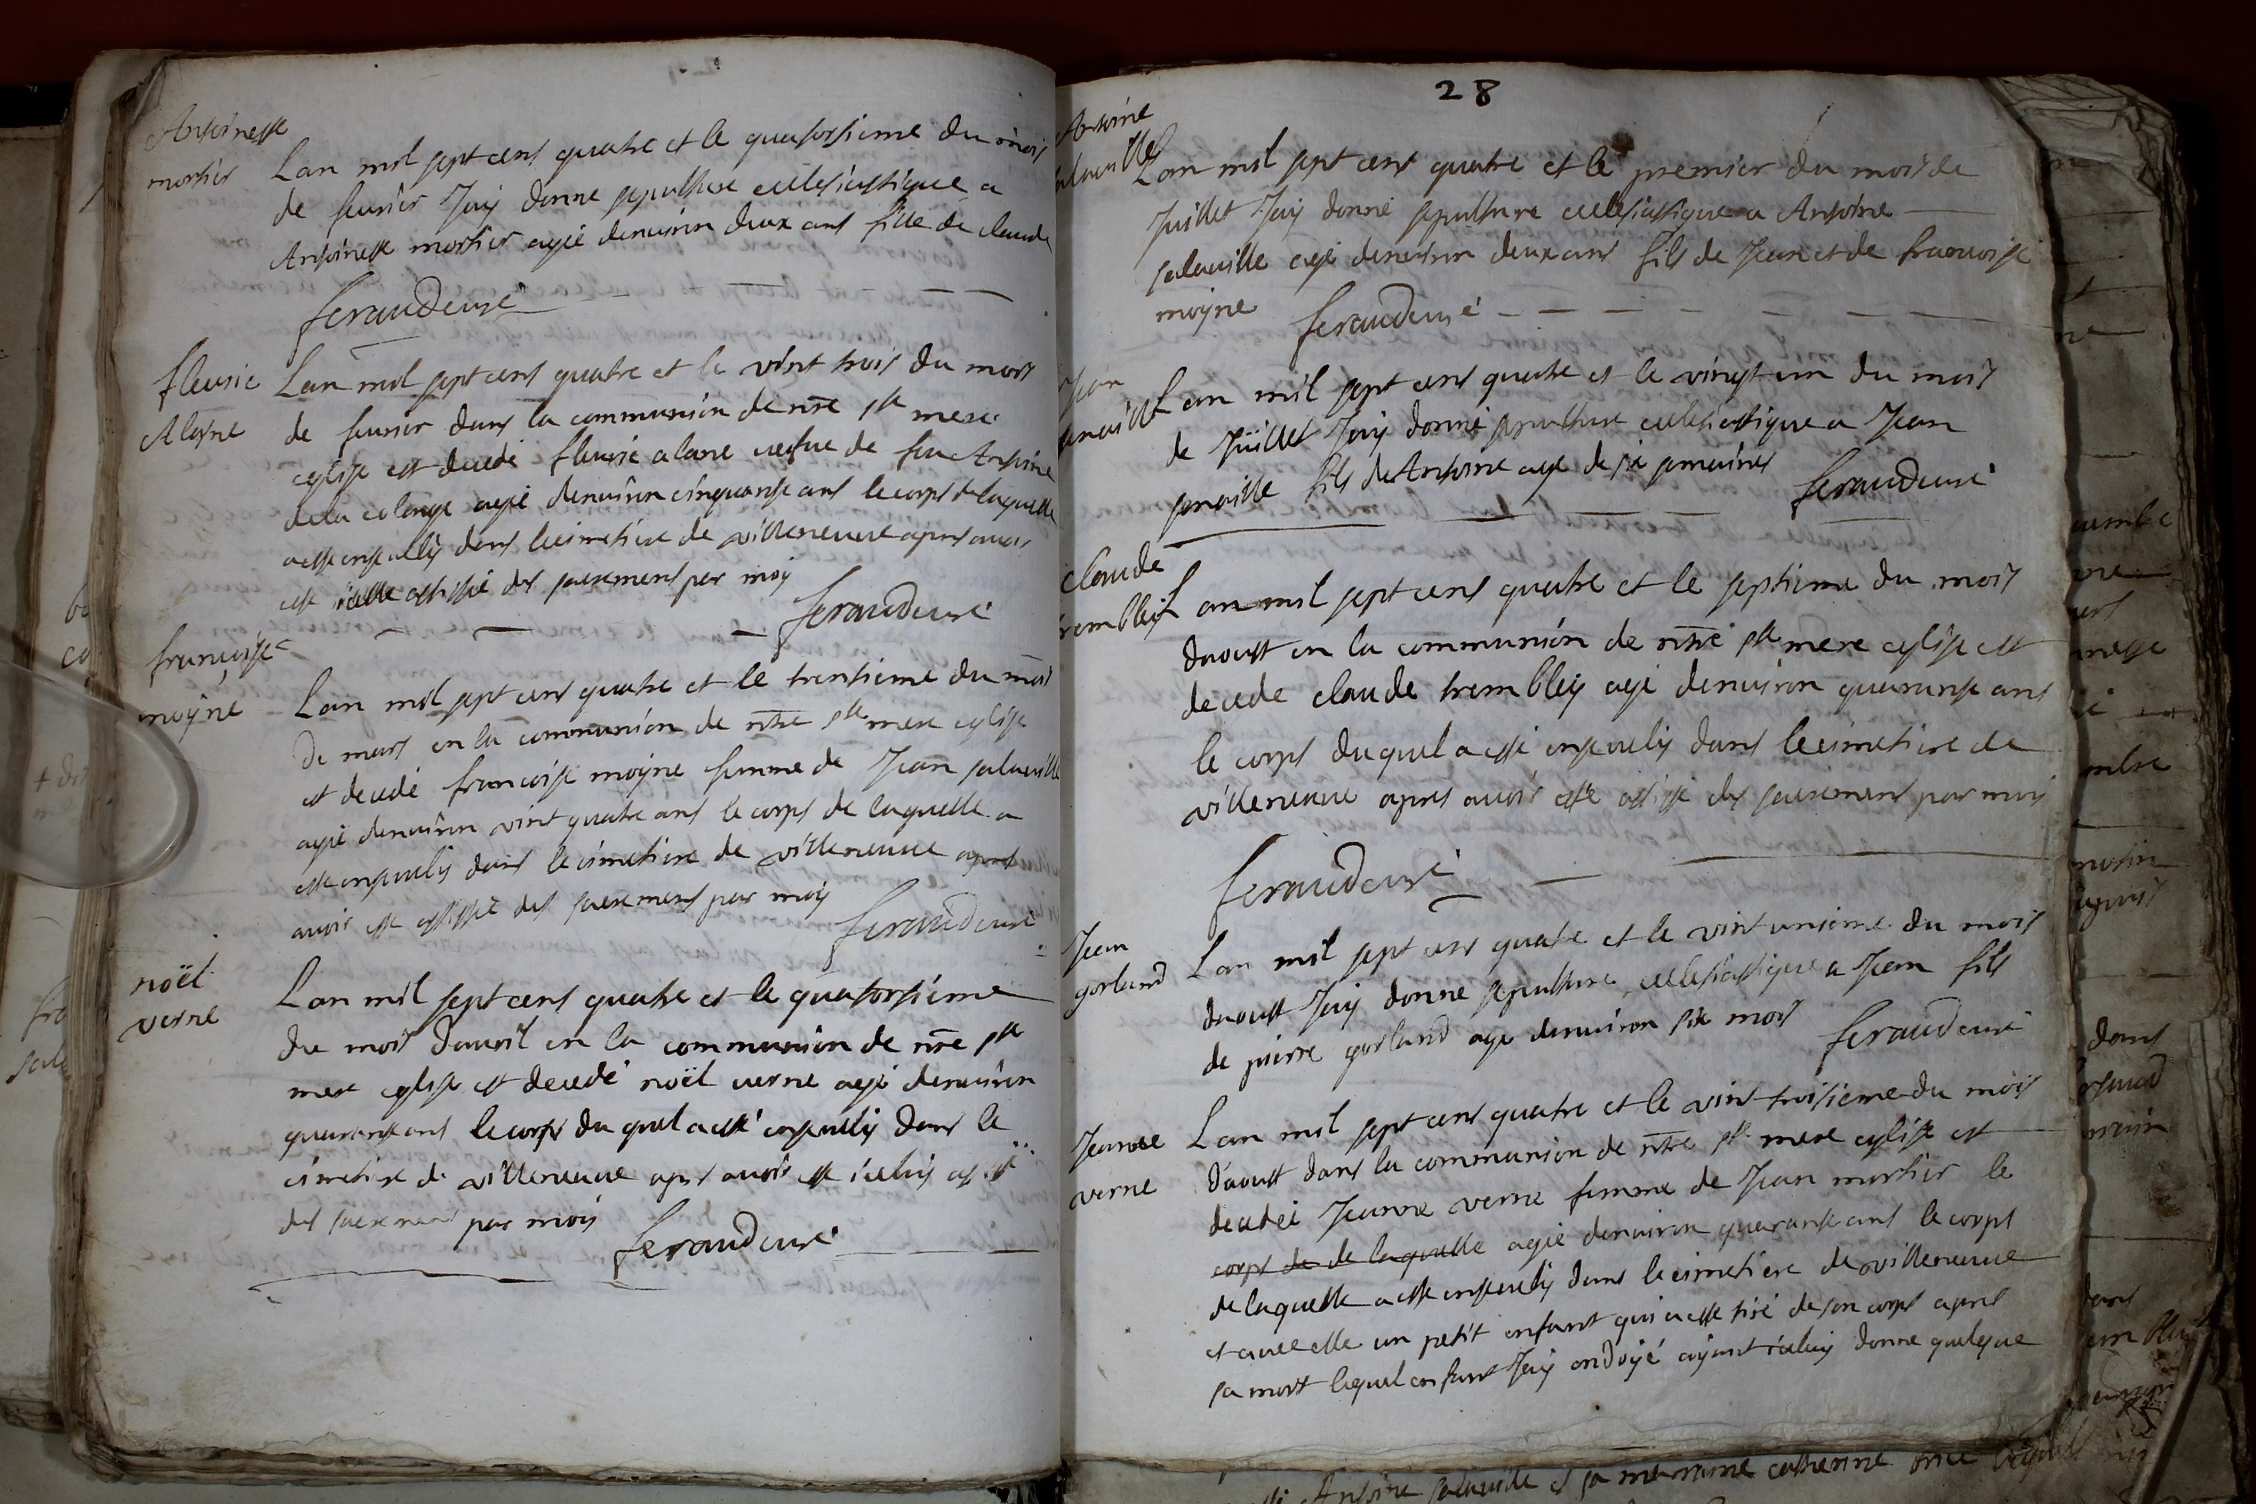 Antoinette
mortier
Lan mil sept cens quatre et le quatorsieme du mois
de feurier Jay donne sepulture ecclesiastique a
Antoinette mortier agée denuiron deux ans fille de claude
feraud curé
fleurie
Alayne
Lan mil sept cens quatre et le vint trois du mois
de feurier dans la communion de nre ste mere
eglise est decedé fleurie alane uefue de feu Antoine
dela colonge agée denuiron cinquante ans le corps de laquelle
a esté enseuely dans le cimetiere de villeneuue apres auoir
esté icelle assistée des sacremens par moy
feraud curé
francoise
moyne
Lan mil sept cens quatre et le trentieme du mois
de mars en la communion de ntre ste mere eglise
est decedé francoise moyne femme de Jean salauille
agée denuiron vint quatre ans le corps de laquelle a
esté enseuely dans le cimetiere de villeneuue apres
auoir esté assistée des sacremens par moy
feraud curé
noël
verne
Lan mil sept cens quatre et le quatorsieme
du mois dauril en la communion de nre ste
mere eglise est decedé noël uerne agé denuiron
quarante ans le corps du quel a esté enseuely dans le
cimetiere de villeneuue apres auoir esté iceluy assisté
des sacremens par moy
feraud curé
28
Antoine
salauille
Lan mil sept cens quatre et le premier du mois de
Juillet Jay donné sepulture ecclesiastique a Antoine
salauille agé denuiron deux ans fils de Jean et de francoise
moyne
feraud curé
Jean
Lan mil sept cens quatre et le vingt un du mois
de Juillet Jay donné sepulture ecclesiastique a Jean
fils de Antoine agé de six semaines
feraud curé
claude
trembley
Lan mil sept cens quatre et le septieme du mois
daoust en la communion de ntre ste mere eglise est
decede claude trembley agé denuiron quarante ans
le corps du quel a esté enseuely dans le cimetiere de
villeneuue apres auoir esté assisté des sacremens par moy
feraud curé
Jean
gorland
Lan mil sept cens quatre et le vint unieme du mois
daoust Jay donne sepulture ecclesiastique a Jean fils
de pierre gorland agé denuiron six mois
feraud curé
Jeanne
verne
Lan mil sept cens quatre et le vint troisieme du mois
daoust dans la communion de ntre ste mere eglise est
decedée Jeanne verne femme de Jean mortier le
corps de de laquelle agée denuiron quarante ans le corps
de laquelle a esté enseuely dans le cimetiere de villeneuue
et auec elle un petit enfant qui a esté tiré de son corps apres
sa mort lequel enfant Jay ondoyé ayant iceluy donne quelque
Antoine salauille et sa marraine catherine